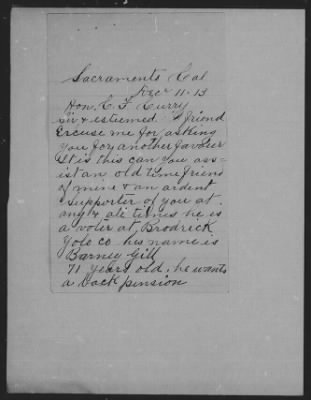 Sacramento Cal
Dec 11-13
Hon. C. F. Curry
Sir & esteemed friend
Excuse me for asking
you for another favour
It is this can you ass=
ist an old time friend
of mine & an ardent
supporter of you at
any & all times he is
a voter at Brodrick
Yolo co his name is
Barney Gill
71 years old. he wants
a back pension